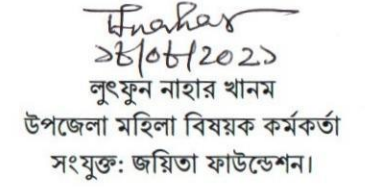 ১৮/০৮/2021
লুৎফুন নাহার খানম
উপজেলা মহিলা বিষয়ক কর্মকর্তা
সংযুক্ত: জয়িতা ফাউন্ডেশন।